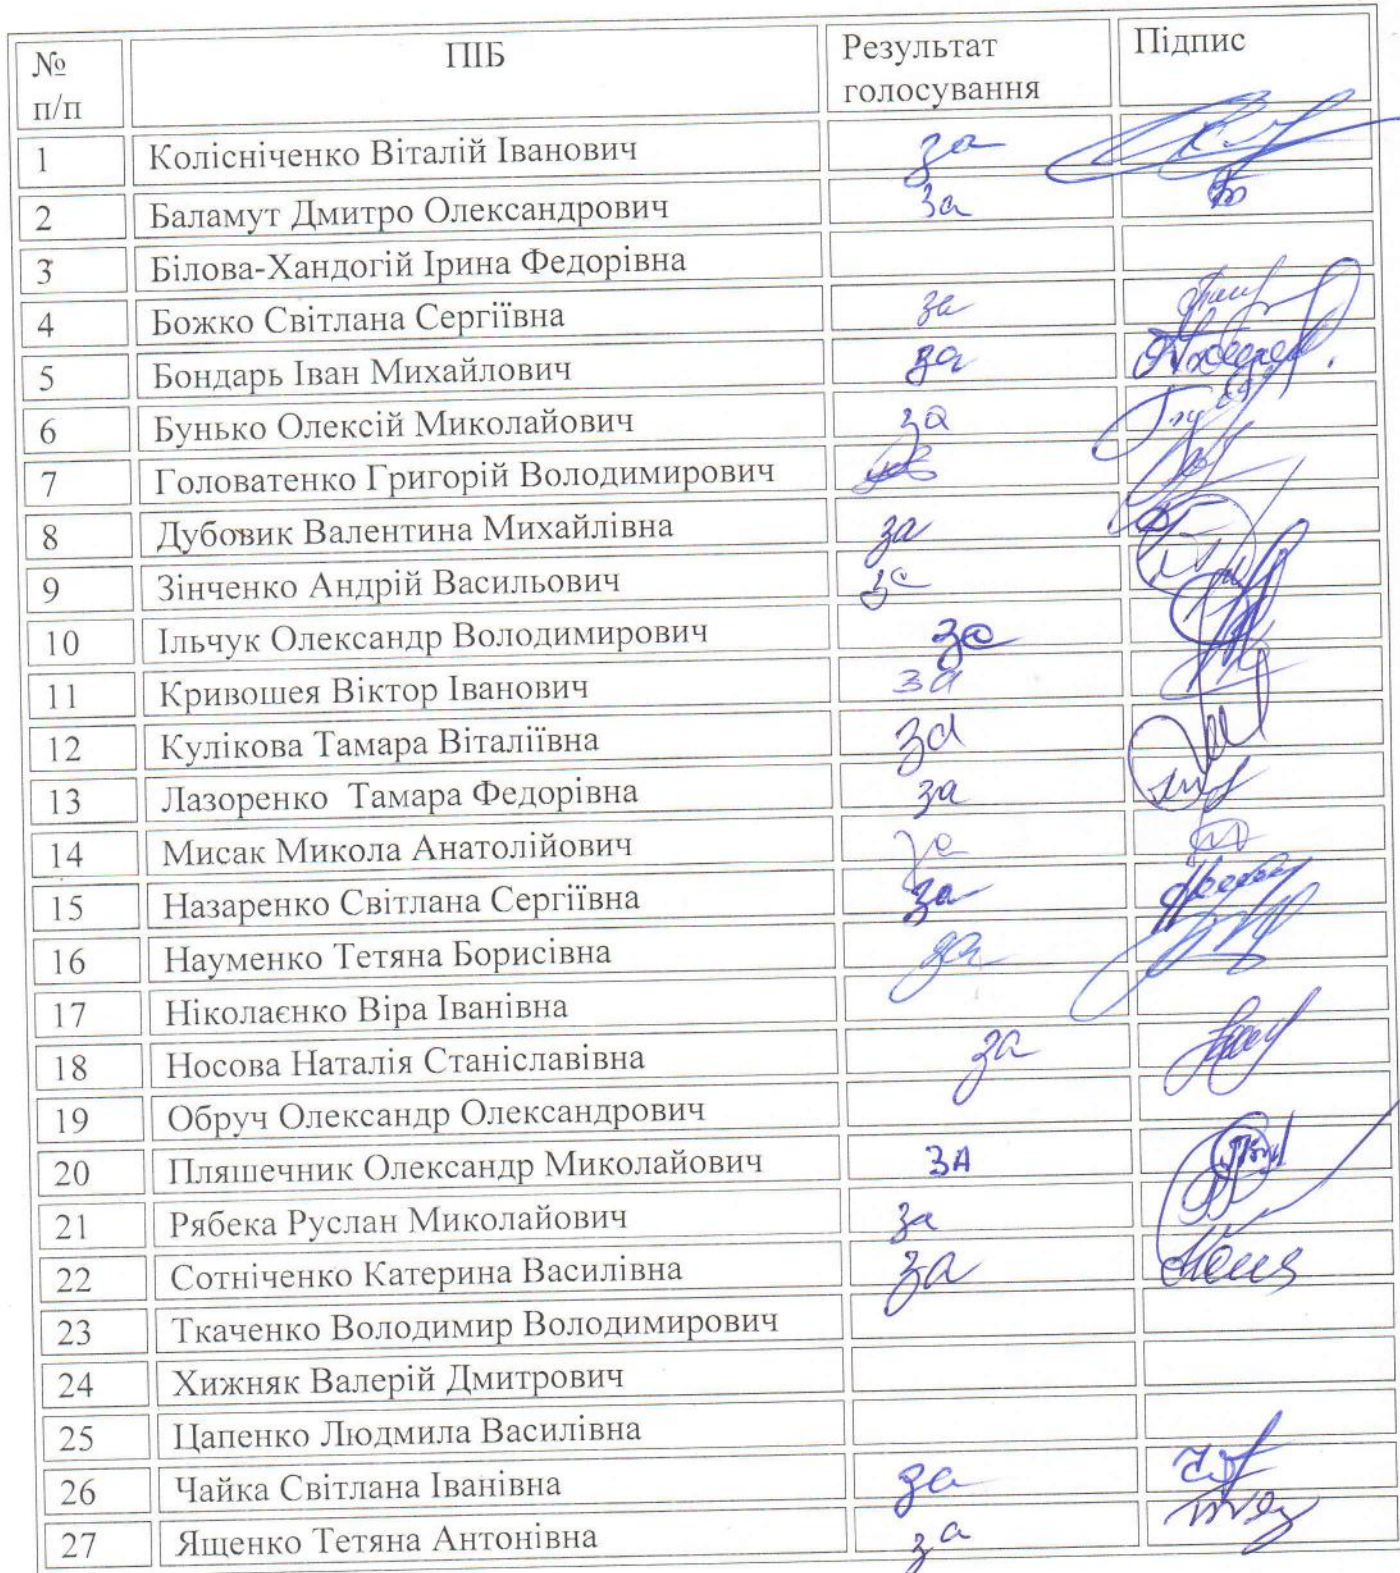 № п/п ПІБ Результат голосування Підпис
1 Колісніченко Віталій Іванович за
2 Баламут Дмитро Олександрович за
3 Білова-Хандогій Ірина Федорівна
4 Божко Світлана Сергіївна за
5 Бондарь Іван Михайлович за
6 Бунько Олексій Миколайович за
7 Головатенко Григорій Володимирович
8 Дубовик Валентина Михайлівна за
9 Зінченко Андрій Васильович за
10 Ільчук Олександр Володимирович за
11 Кривошея Віктор Іванович за
12 Кулікова Тамара Віталіївна за
13 Лазоренко Тамара Федорівна за
14 Мисак Микола Анатолійович за
15 Назаренко Світлана Сергіївна за
16 Науменко Тетяна Борисівна за
17 Ніколаєнко Віра Іванівна
18 Носова Наталія Станіславівна за
19 Обруч Олександр Олександрович
20 Пляшечник Олександр Миколайович ЗА
21 Рябека Руслан Миколайович за
22 Сотніченко Катерина Василівна за
23 Ткаченко Володимир Володимирович
24 Хижняк Валерій Дмитрович
25 Цапенко Людмила Василівна
26 Чайка Світлана Іванівна за
27 Ященко Тетяна Антонівна за